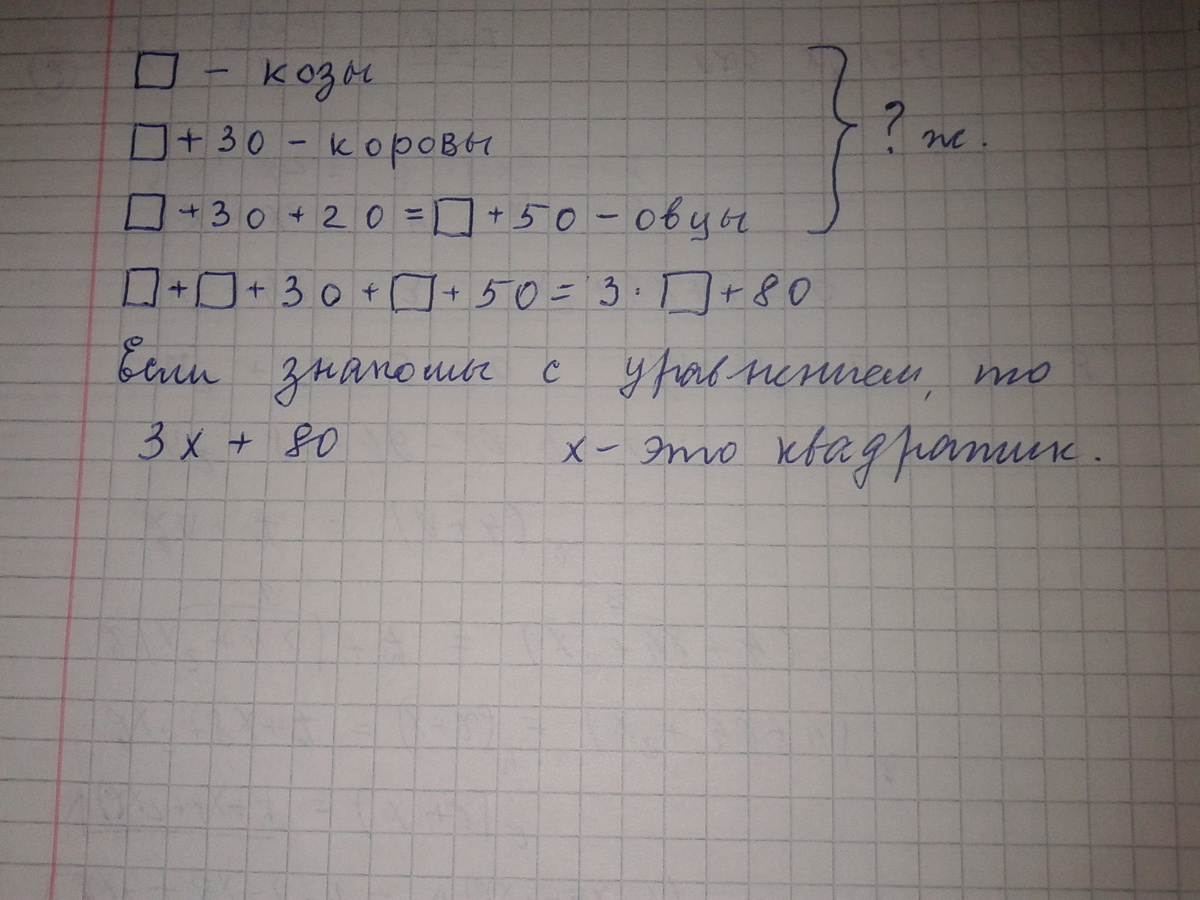 □ - козы
□ + 30 - коровы
□ + 30 + 20 = □ + 50 - овцы
} ? ж.
□ + □ + 30 + □ + 50 = 3 · □ + 80
Если знакомы с уравнением, то
3x + 80 x - это квадратик.